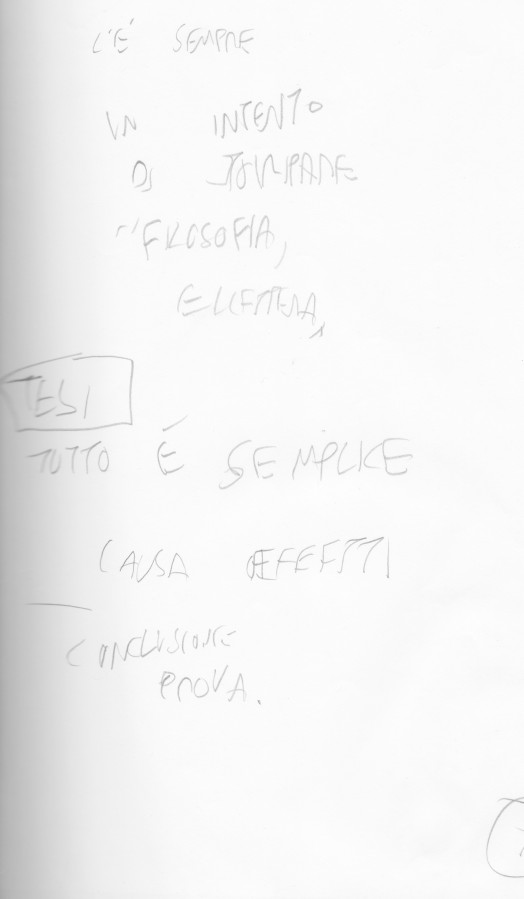 C'È SEMPRE
UN INTENTO
DI
FILOSOFIA,
TESI
TUTTO È SEMPLICE
CAUSA EFFETTI
CONCLUSIONE
PROVA.